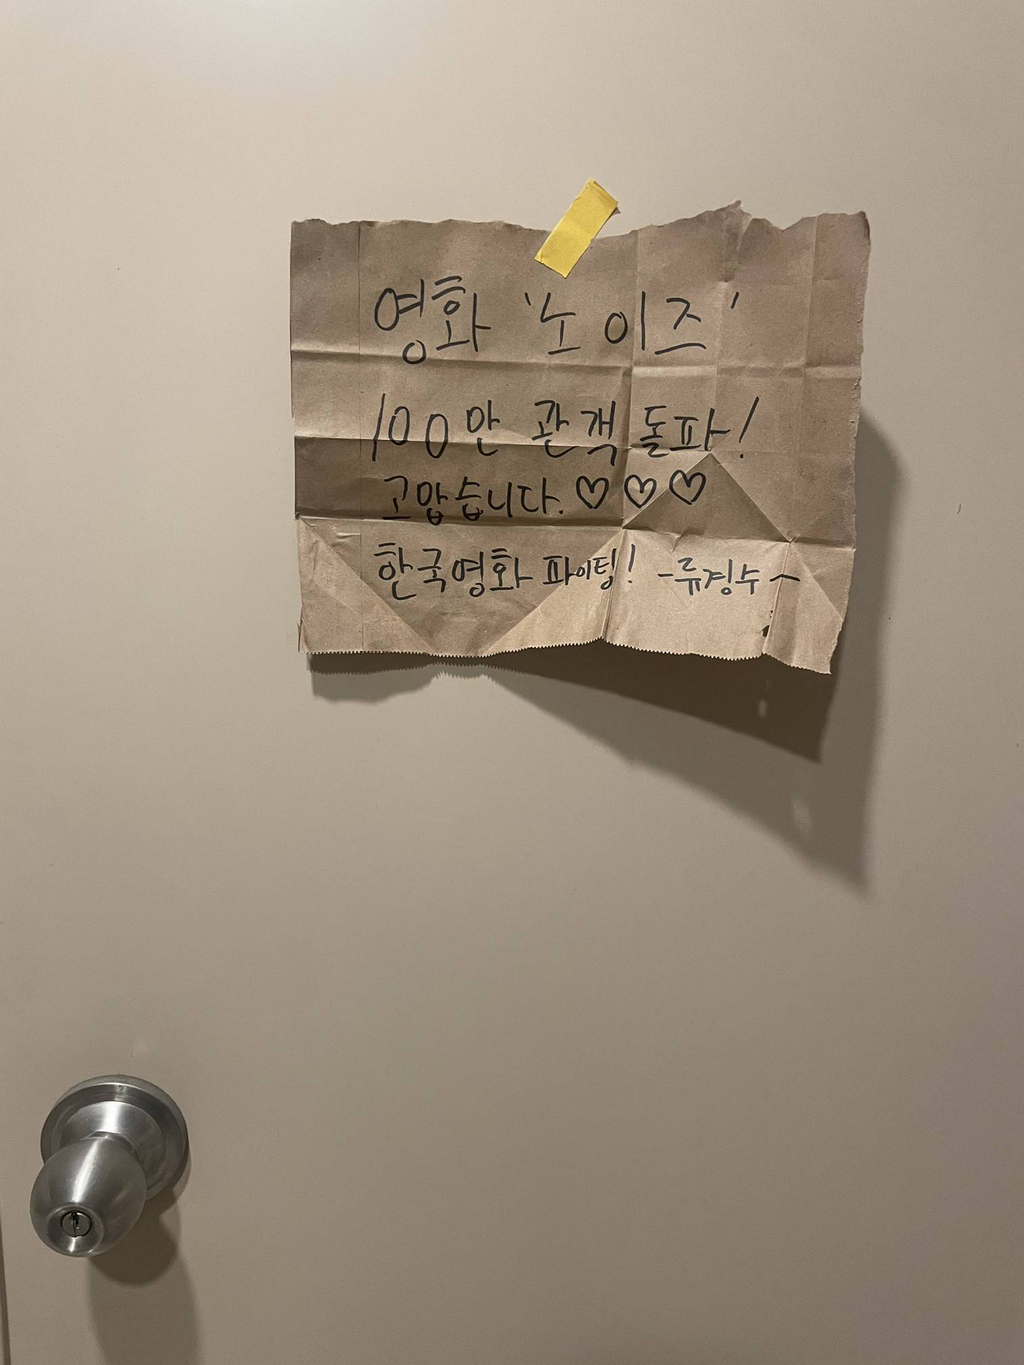 영화 '노이즈'
100만 관객 돌파!
고맙습니다. ♡♡♡
한국영화 파이팅! -류경수-